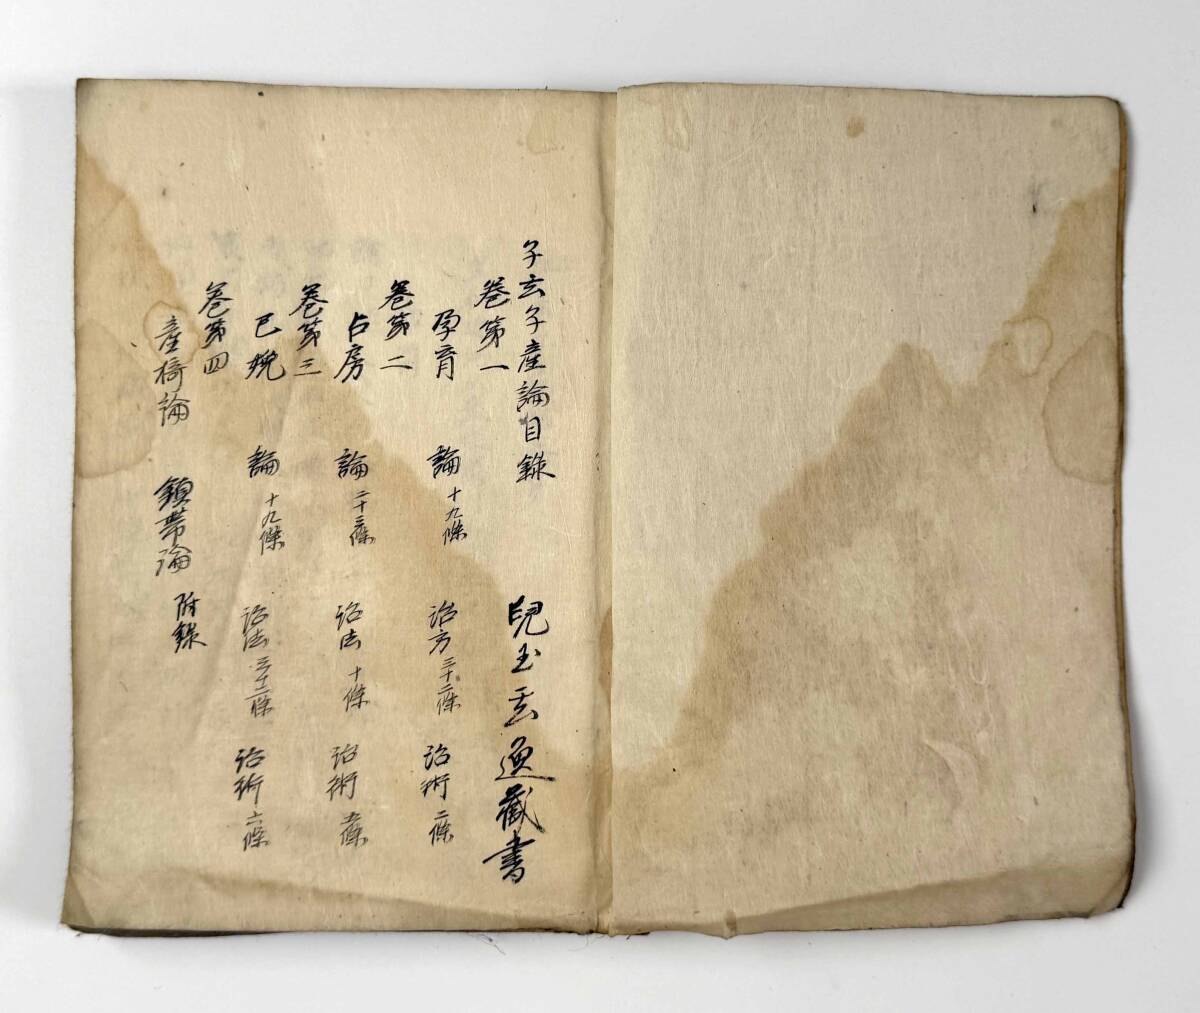 子玄子產論目錄 兒玉玄通藏書
卷第一
孕育 論十九條 治方三十二條 治術二條
卷第二
占房 論二十三條 治法十條 治術五條
卷第三
已娩 論十九條 治法三十二條 治術六條
卷第四
產椅論 鎮帶論 附錄